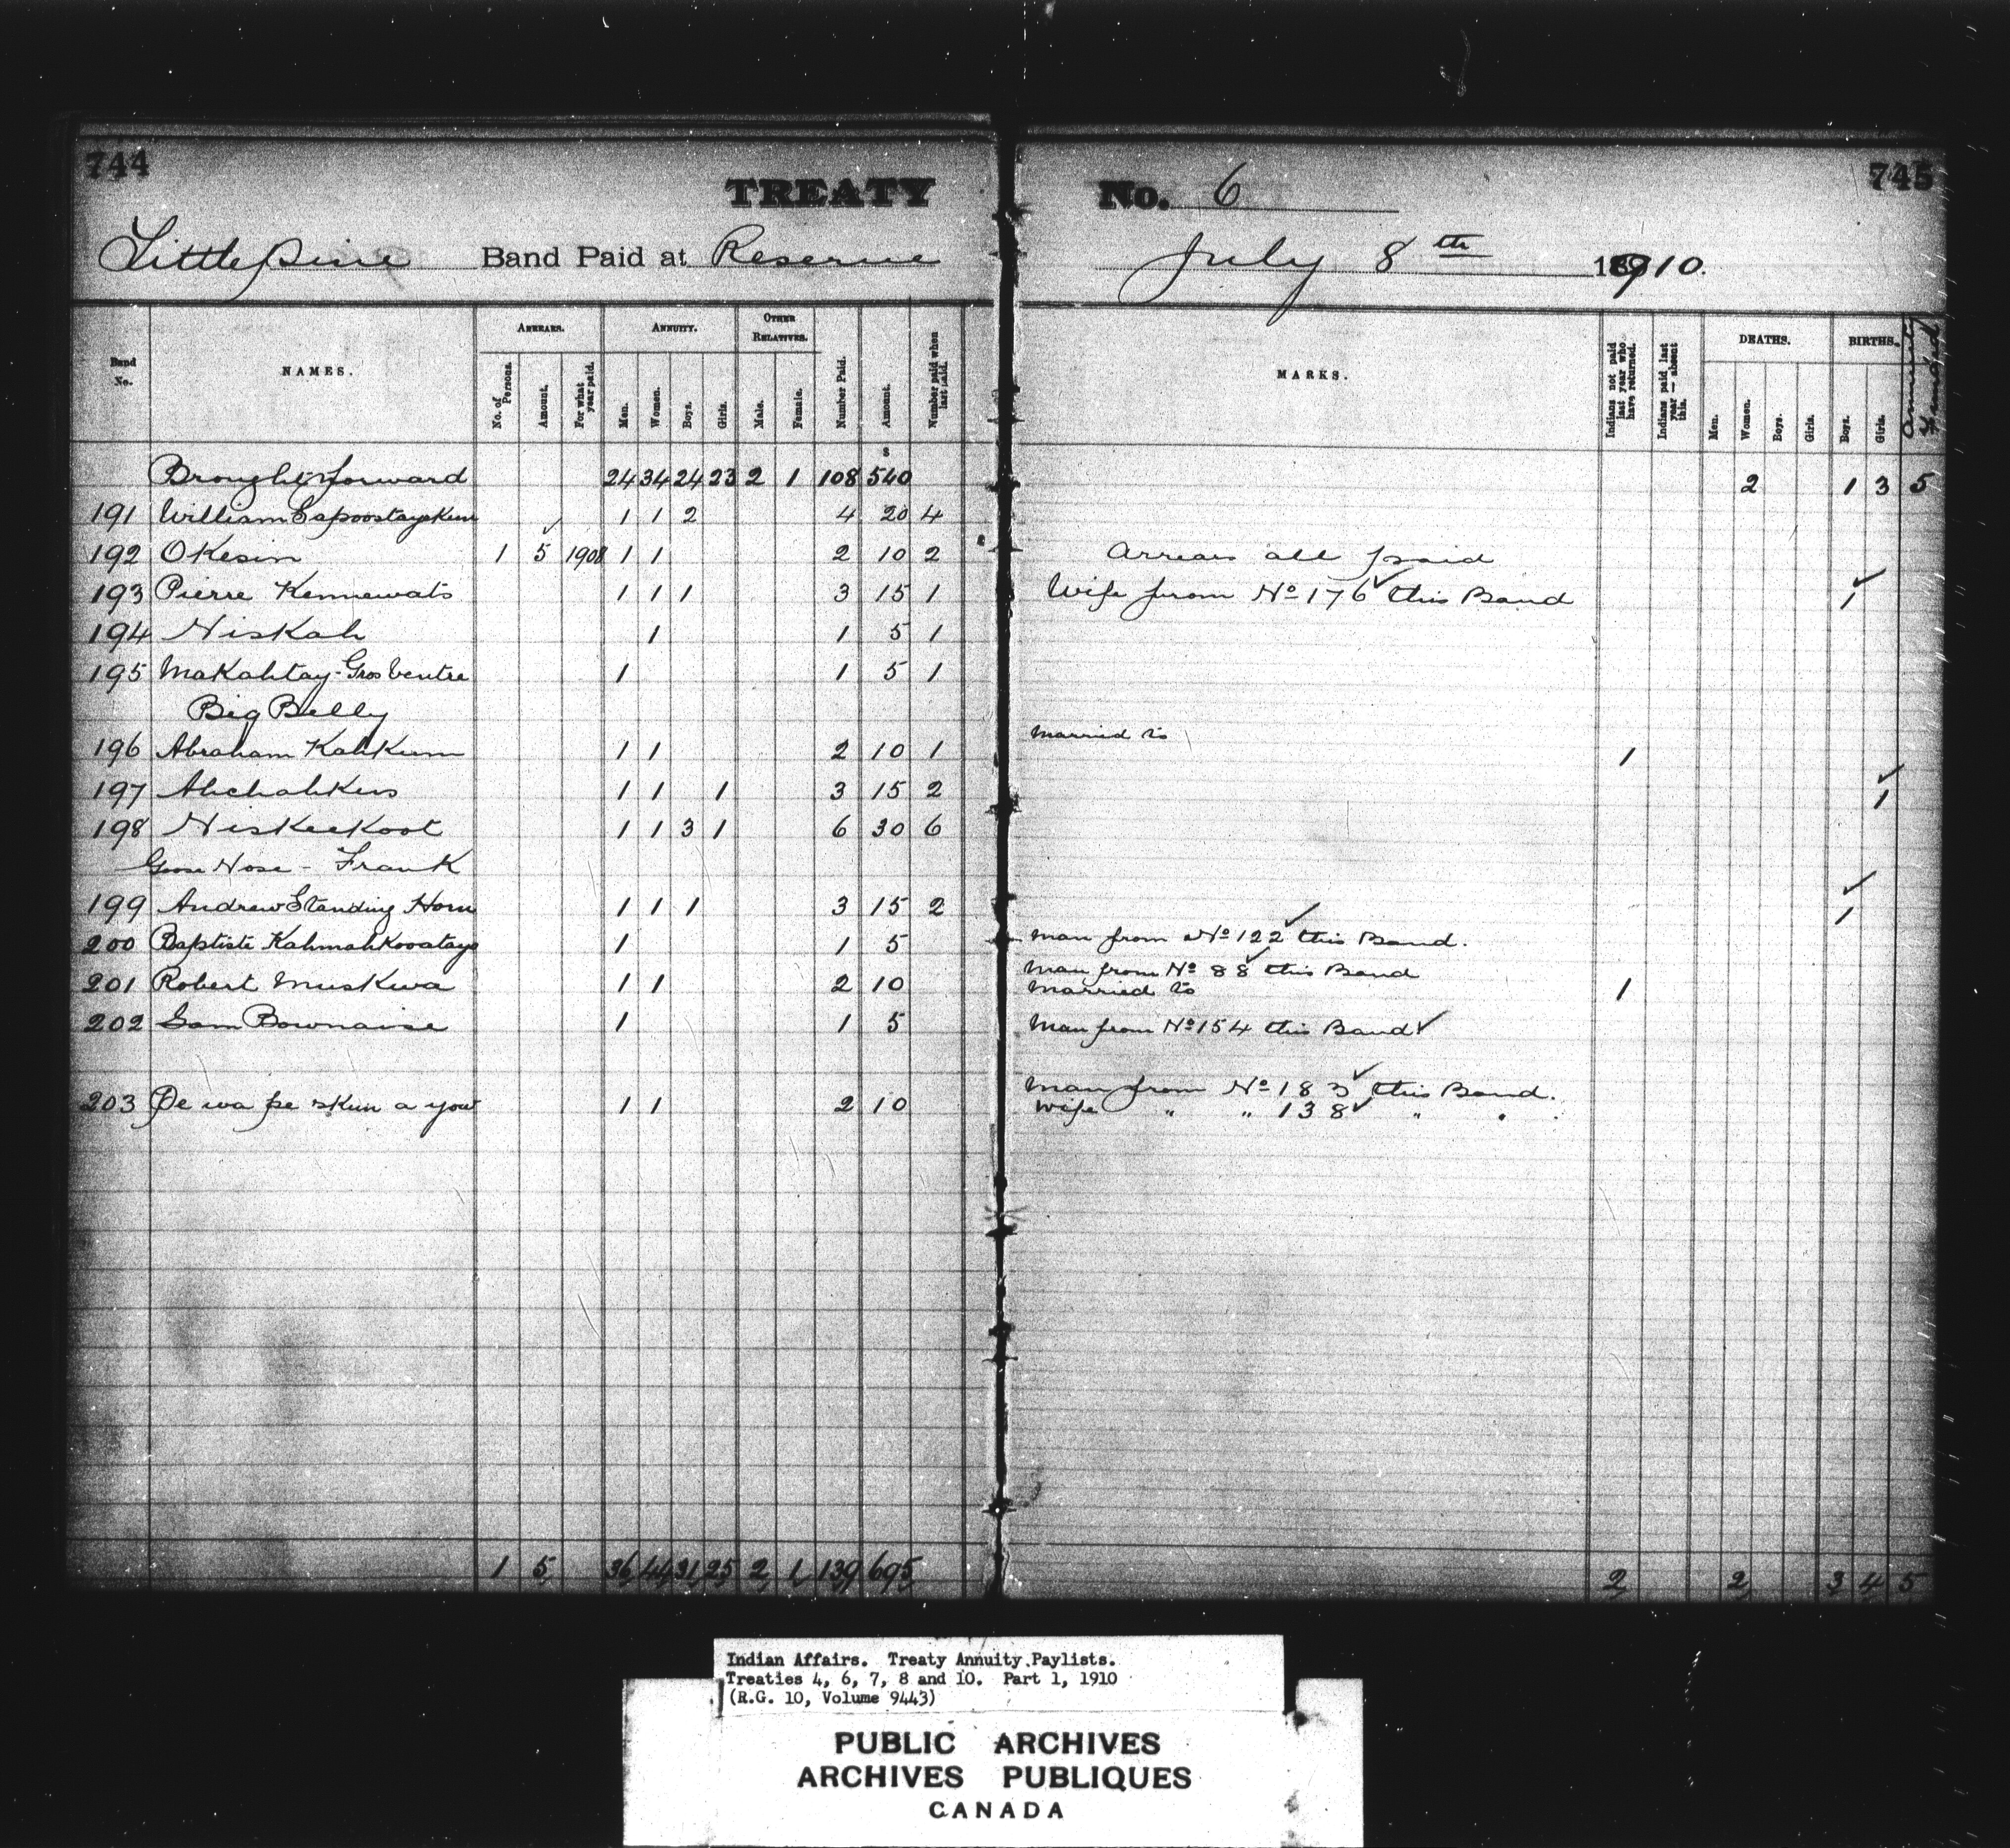 744
TREATY No. 6
745
Little Pine Band Paid at Reserve July 8th 1910.
Band No. NAMES. ARREARS. ANNUITY. OTHER RELATIVES. MARKS. DEATHS. BIRTHS.
No. of Persons. Amount. For what year paid. Men. Women. Boys. Girls. Male. Female. Number Paid. Amount. Number paid when last paid. Indians not paid last year who have returned. Indians paid last year — absent this. Men. Women. Boys. Girls. Boys. Girls.
$
Brought forward 24 34 24 23 2 1 108 540 2 1 3 5
191 William Sapoostayskum 1 1 2 4 20 4
192 OKesin 1 5 1908 1 1 2 10 2 Arrears all paid
193 Pierre Kennewats 1 1 1 3 15 1 Wife from No 176 ✓ this Band 1 ✓
194 Niskah 1 1 5 1
195 Makahtay - Gros Ventre 1 1 5 1
Big Belly
196 Abraham Kahkum 1 1 2 10 1 Married to 1
197 Ahchahkus 1 1 1 3 15 2 1 ✓
198 Niskeekoot 1 1 3 1 6 30 6
Goose Nose - Frank
199 Andrew Standing Horn 1 1 1 3 15 2 1 ✓
200 Baptiste Kahmahkooatays 1 1 5 Man from No 122 ✓ this Band.
201 Robert Muskwa 1 1 2 10 Man from No 88 ✓ this Band
Married to 1
202 Sam Bownaise 1 1 5 Man from No 154 this Band ✓
203 Pe wa pe skun a yow 1 1 2 10 Man from No 183 ✓ this Band.
Wife " " 138 ✓ " "
1 5 36 44 31 25 2 1 139 695 2 2 3 4 5
Indian Affairs. Treaty Annuity Paylists.
Treaties 4, 6, 7, 8 and 10. Part 1, 1910
(R.G. 10, Volume 9443)
PUBLIC ARCHIVES
ARCHIVES PUBLIQUES
CANADA